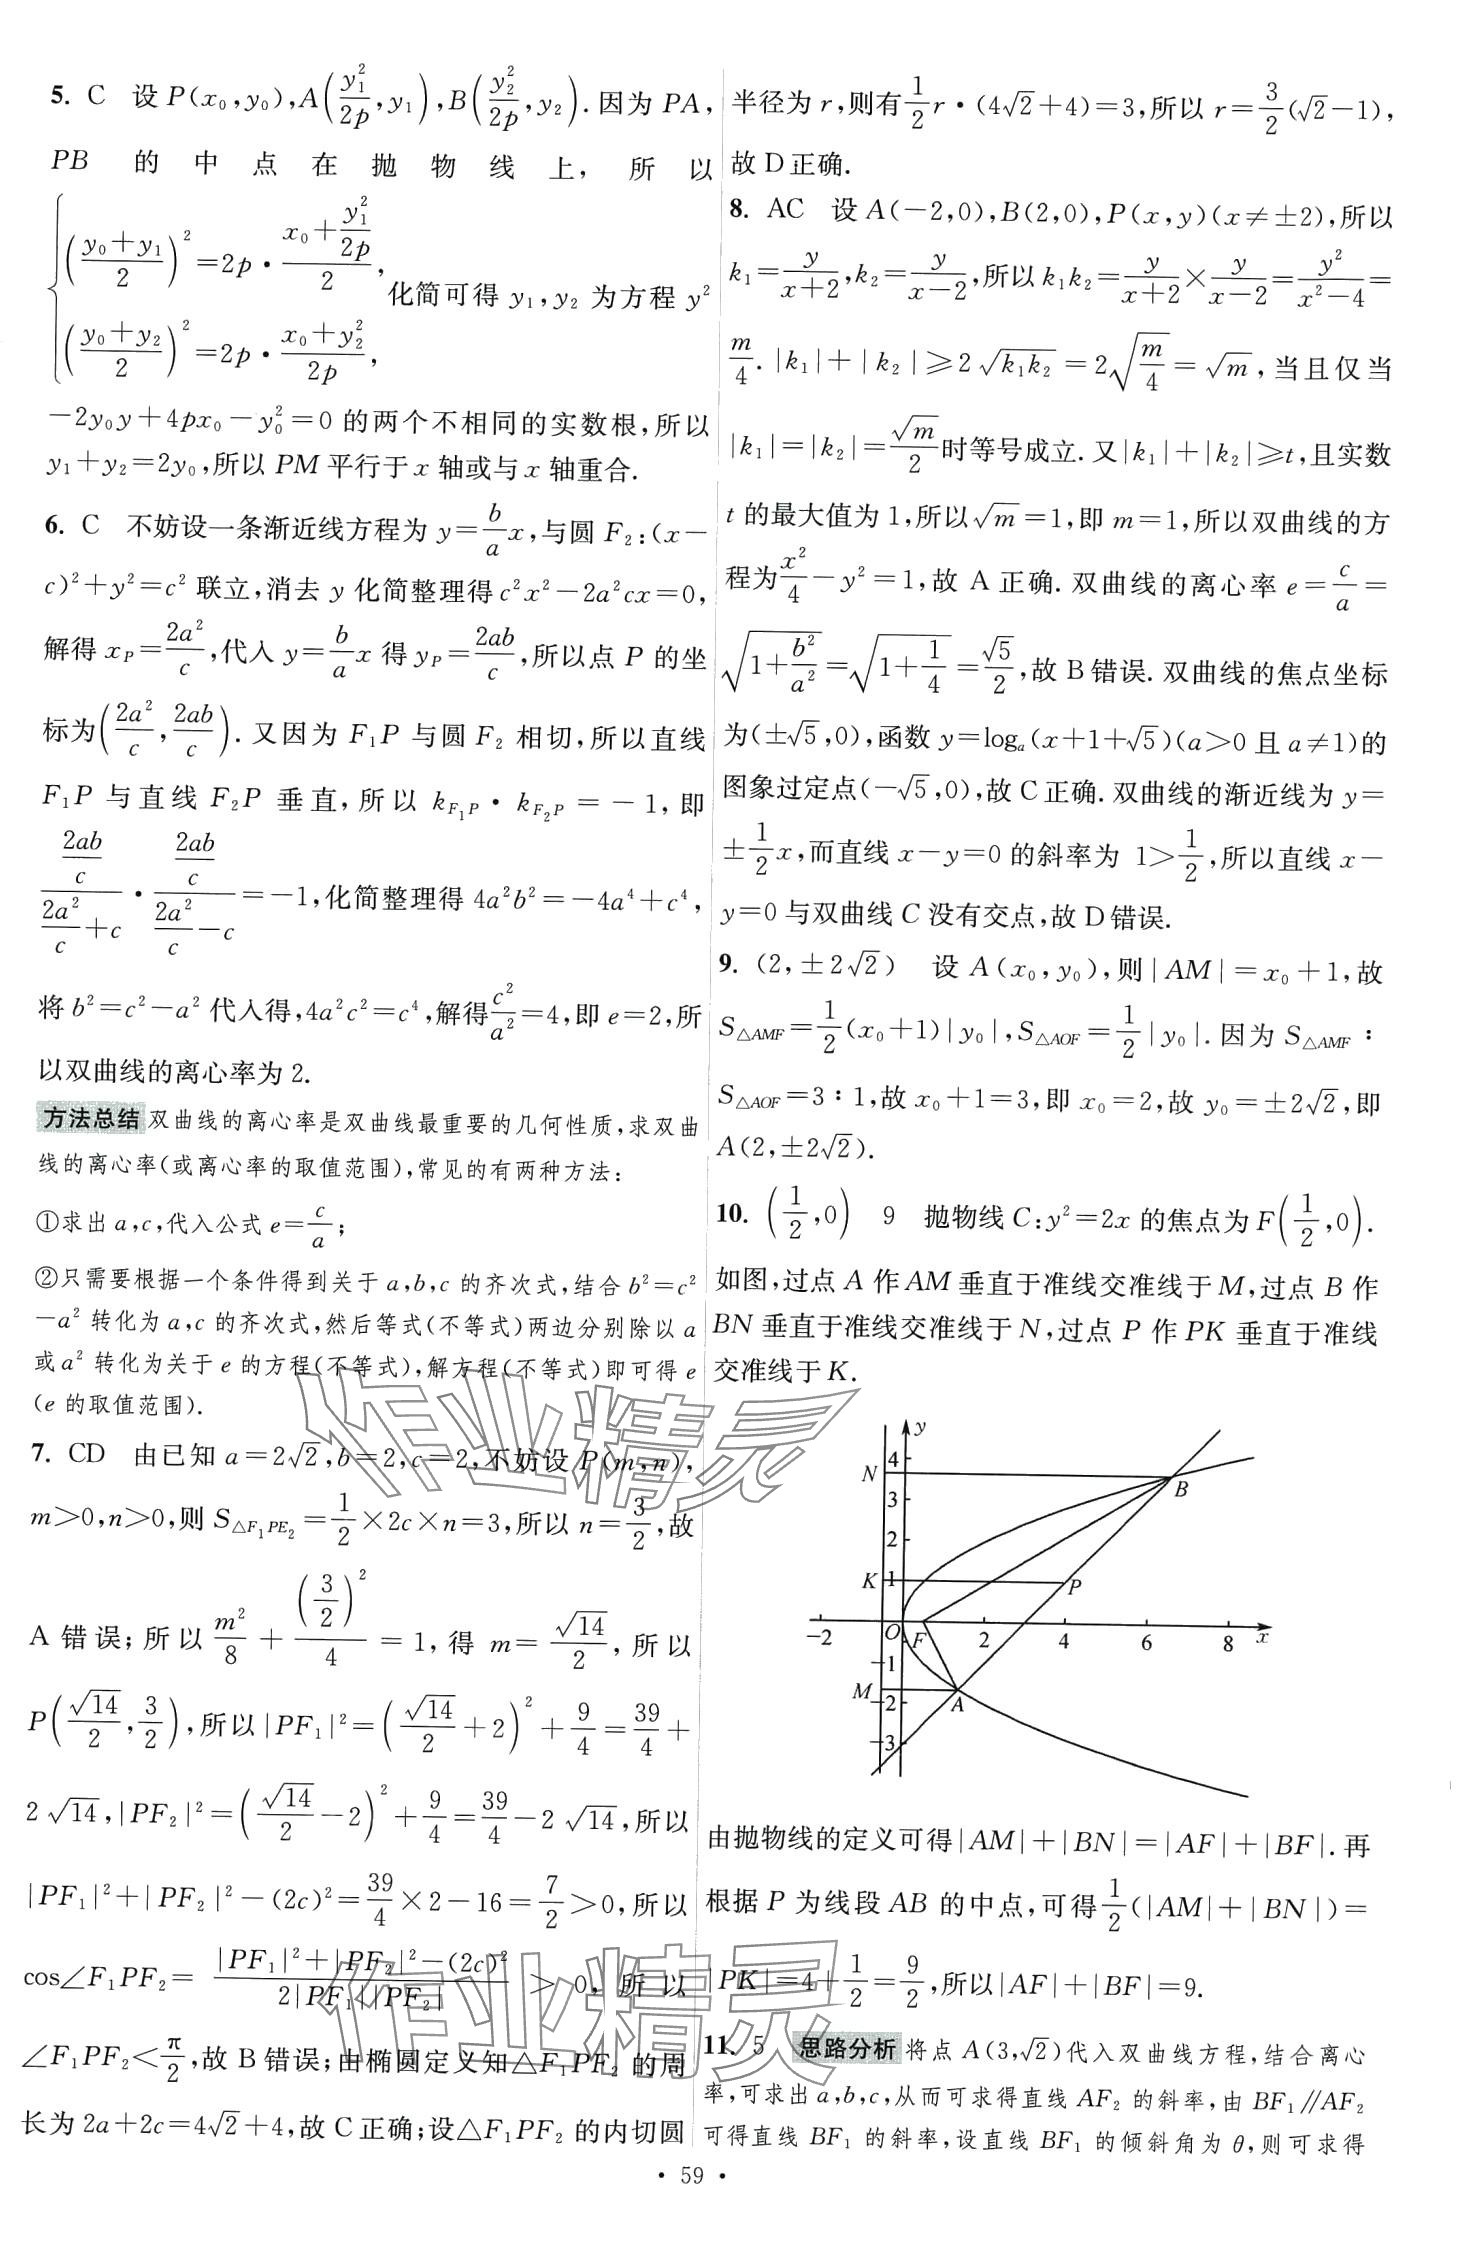 5. C 设 P(x₀,y₀),A(y₁²/2p,y₁),B(y₂²/2p,y₂).因为 PA,
PB 的中点在抛物线上,所以
{((y₀+y₁)/2)²=2p·(x₀+y₁²/2p)/2,
((y₀+y₂)/2)²=2p·(x₀+y₂²)/2p,
化简可得 y₁,y₂ 为方程 y²
−2y₀y+4px₀−y₀²=0 的两个不相同的实数根,所以
y₁+y₂=2y₀,所以 PM 平行于 x 轴或与 x 轴重合.
6. C 不妨设一条渐近线方程为 y=b/a x,与圆 F₂:(x−
c)²+y²=c² 联立,消去 y 化简整理得 c²x²−2a²cx=0,
解得 x_P=2a²/c,代入 y=b/a x 得 y_P=2ab/c,所以点 P 的坐
标为(2a²/c,2ab/c).又因为 F₁P 与圆 F₂ 相切,所以直线
F₁P 与直线 F₂P 垂直,所以 k_{F₁P}·k_{F₂P}=−1,即
(2ab/c)/(2a²/c+c)·(2ab/c)/(2a²/c−c)=−1,化简整理得 4a²b²=−4a⁴+c⁴,
将 b²=c²−a² 代入得,4a²c²=c⁴,解得c²/a²=4,即 e=2,所
以双曲线的离心率为 2.
方法总结 双曲线的离心率是双曲线最重要的几何性质,求双曲
线的离心率(或离心率的取值范围),常见的有两种方法:
①求出 a,c,代入公式 e=c/a;
②只需要根据一个条件得到关于 a,b,c 的齐次式,结合 b²=c²
−a² 转化为 a,c 的齐次式,然后等式(不等式)两边分别除以 a
或 a² 转化为关于 e 的方程(不等式),解方程(不等式)即可得 e
(e 的取值范围).
7. CD 由已知 a=2√2,b=2,c=2,不妨设 P(m,n),
m>0,n>0,则 S_{△F₁PE₂}=1/2×2c×n=3,所以 n=3/2,故
A 错误;所以 m²/8+(3/2)²/4=1,得 m=√14/2,所以
P(√14/2,3/2),所以|PF₁|²=(√14/2+2)²+9/4=39/4+
2√14,|PF₂|²=(√14/2−2)²+9/4=39/4−2√14,所以
|PF₁|²+|PF₂|²−(2c)²=39/4×2−16=7/2>0,所以
cos∠F₁PF₂=(|PF₁|²+|PF₂|²−(2c)²)/(2|PF₁||PF₂|)>0,所以
∠F₁PF₂<π/2,故 B 错误;由椭圆定义知△F₁PF₂ 的周
长为 2a+2c=4√2+4,故 C 正确;设△F₁PF₂ 的内切圆
半径为 r,则有1/2 r·(4√2+4)=3,所以 r=3/2(√2−1),
故 D 正确.
8. AC 设 A(−2,0),B(2,0),P(x,y)(x≠±2),所以
k₁=y/(x+2),k₂=y/(x−2),所以 k₁k₂=y/(x+2)×y/(x−2)=y²/(x²−4)=
m/4.|k₁|+|k₂|≥2√(k₁k₂)=2√(m/4)=√m,当且仅当
|k₁|=|k₂|=√m/2时等号成立.又|k₁|+|k₂|≥t,且实数
t 的最大值为 1,所以√m=1,即 m=1,所以双曲线的方
程为x²/4−y²=1,故 A 正确.双曲线的离心率 e=c/a=
√(1+b²/a²)=√(1+1/4)=√5/2,故 B 错误.双曲线的焦点坐标
为(±√5,0),函数 y=logₐ(x+1+√5)(a>0 且 a≠1)的
图象过定点(−√5,0),故 C 正确.双曲线的渐近线为 y=
±1/2 x,而直线 x−y=0 的斜率为 1>1/2,所以直线 x−
y=0 与双曲线 C 没有交点,故 D 错误.
9. (2,±2√2) 设 A(x₀,y₀),则|AM|=x₀+1,故
S_{△AMF}=1/2(x₀+1)|y₀|,S_{△AOF}=1/2|y₀|.因为 S_{△AMF}:
S_{△AOF}=3:1,故 x₀+1=3,即 x₀=2,故 y₀=±2√2,即
A(2,±2√2).
10. (1/2,0) 9 抛物线 C:y²=2x 的焦点为 F(1/2,0).
如图,过点 A 作 AM 垂直于准线交准线于 M,过点 B 作
BN 垂直于准线交准线于 N,过点 P 作 PK 垂直于准线
交准线于 K.
y
N 4 B
3
2
K 1 P
−2 O F 2 4 6 8 x
−1
M −2 A
−3
由抛物线的定义可得|AM|+|BN|=|AF|+|BF|.再
根据 P 为线段 AB 的中点,可得1/2(|AM|+|BN|)=
|PK|=4+1/2=9/2,所以|AF|+|BF|=9.
11. 5 思路分析 将点 A(3,√2)代入双曲线方程,结合离心
率,可求出 a,b,c,从而可求得直线 AF₂ 的斜率,由 BF₁∥AF₂
可得直线 BF₁ 的斜率,设直线 BF₁ 的倾斜角为 θ,则可求得
作业精灵
作业精灵
· 59 ·